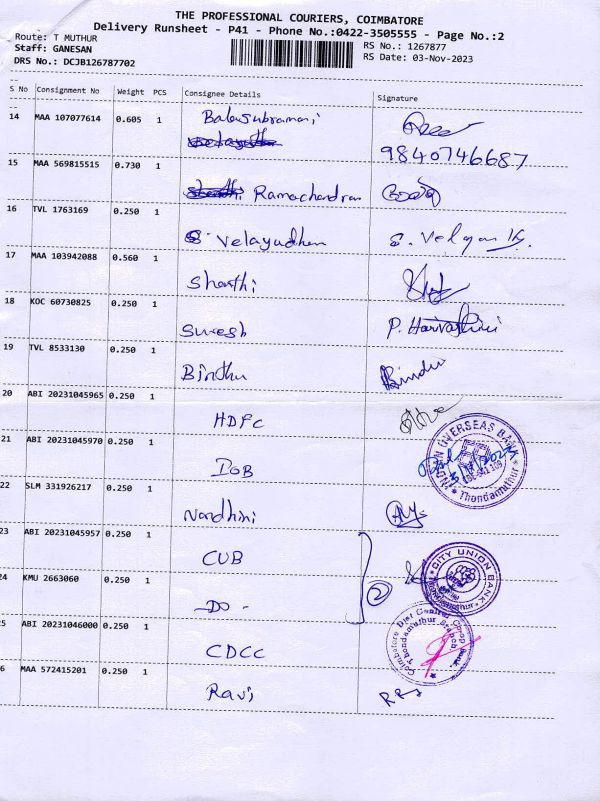 THE PROFESSIONAL COURIERS, COIMBATORE
Delivery Runsheet - P41 - Phone No.:0422-3505555 - Page No.:2
Route: T MUTHUR
RS No.: 1267877
Staff: GANESAN
RS Date: 03-Nov-2023
DRS No.: DCJB126787702
S No Consignment No Weight PCS Consignee Details Signature
14 MAA 107077614 0.605 1 Balasubramani
9840746687
15 MAA 569815515 0.730 1
Ramachandran
16 TVL 1763169 0.250 1
S. Velayudhan S. Velayu
17 MAA 103942088 0.560 1
Shanthi
18 KOC 60730825 0.250 1
Suresh P. Harvashini
19 TVL 8533130 0.250 1
Binthu Bindu
20 ABI 20231045965 0.250 1
HDFC
21 ABI 20231045970 0.250 1
IOB
INDIAN OVERSEAS BANK
Thondamuthur
22 SLM 331926217 0.250 1
Nandhini
23 ABI 20231045957 0.250 1
CUB
2
CITY UNION BANK
24 KMU 2663060 0.250 1
- DO -
25 ABI 20231046000 0.250 1
CDCC
Coimbatore Dist Central Coop Bank
Thondamuthur Branch
26 MAA 572415201 0.250 1
Ravi